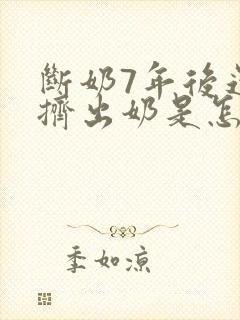 斷奶7年後還
擠出奶是怎
季如涼